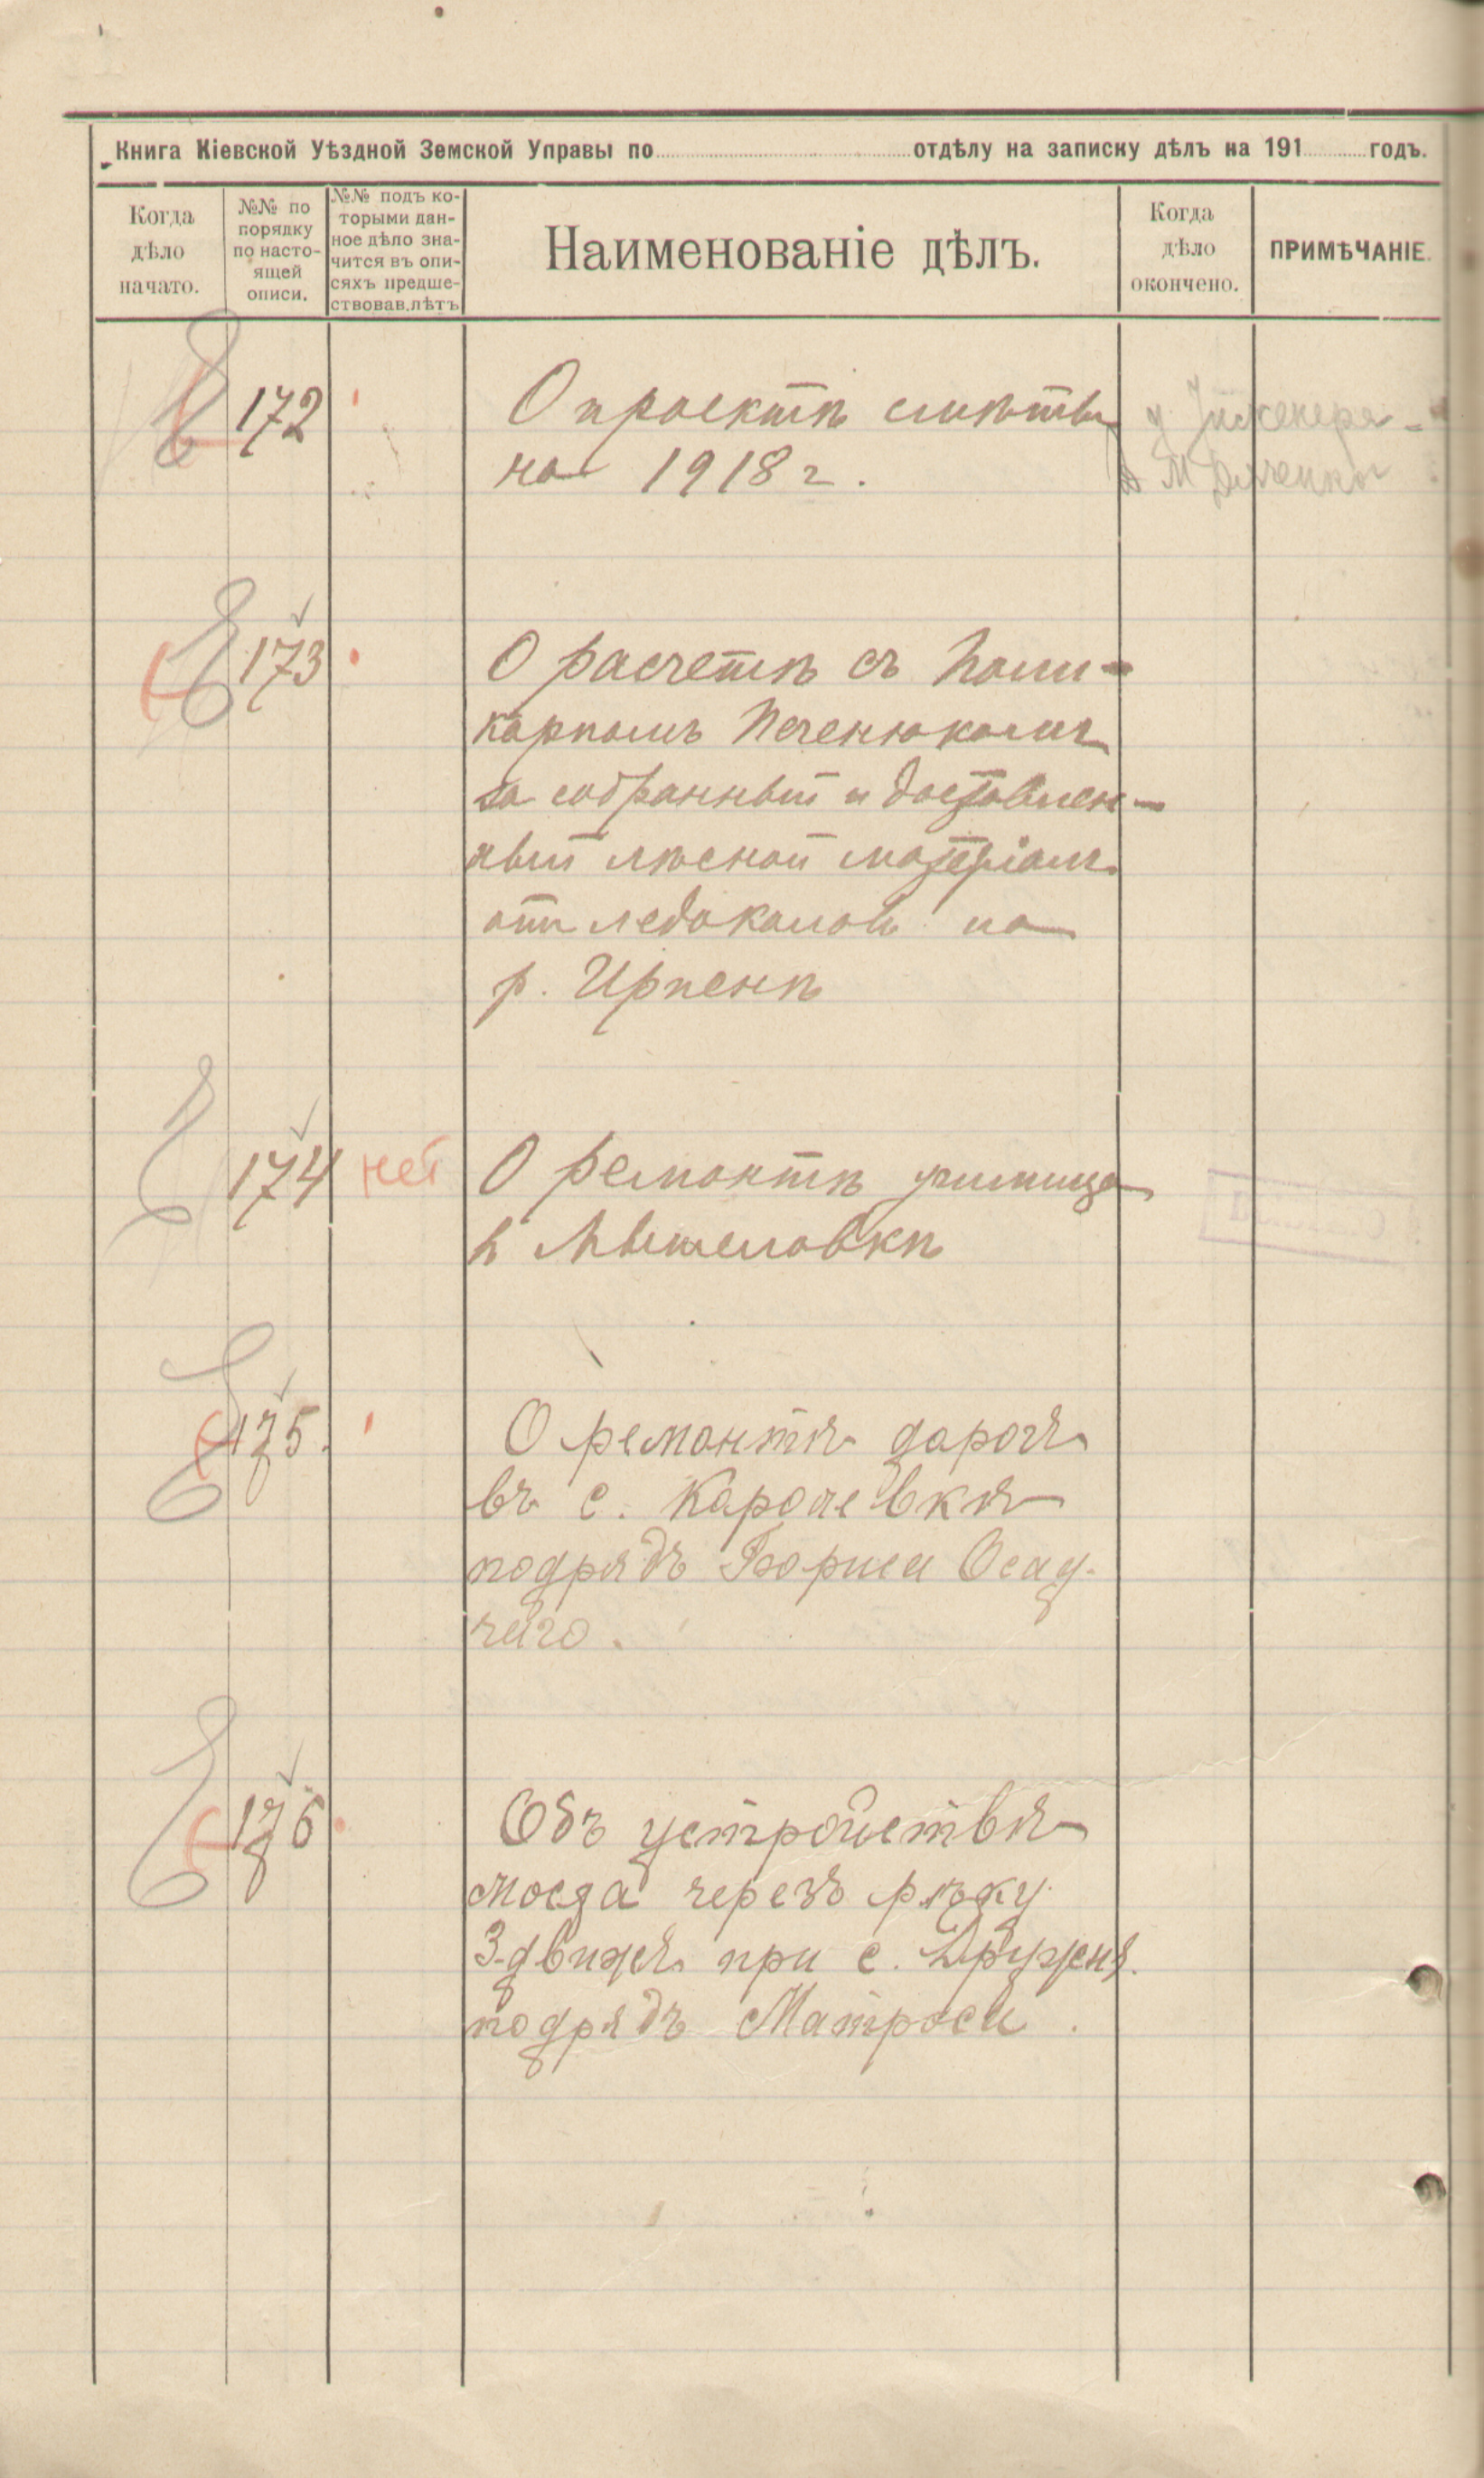 Книга Кіевской Уѣздной Земской Управы по отдѣлу на записку дѣлъ на 191 годъ.
Когда дѣло начато.
№№ по порядку по настоящей описи.
№№ подъ которыми данное дѣло значится въ описяхъ предшествовав. лѣтъ
Наименованіе дѣлъ.
Когда дѣло окончено.
ПРИМѢЧАНІЕ.
172
О проектѣ смѣты
на 1918 г.
у Інженера
173
О расчетѣ съ Поли-
карпомъ Печенюкомъ
за собранный и доставлен-
ный лѣсной матеріалъ
отъ ледоколовъ на
р. Ирпенѣ
174 нет
О ремонтѣ училища
в Мышеловкѣ
175.
О ремонтѣ дорогъ
въ с. Королевкѣ
подрядъ Бориса Осад-
чаго.
176
Объ устройствѣ
моста черезъ рѣку
Здвижъ при с. Дружня.
подрядъ Матроса.